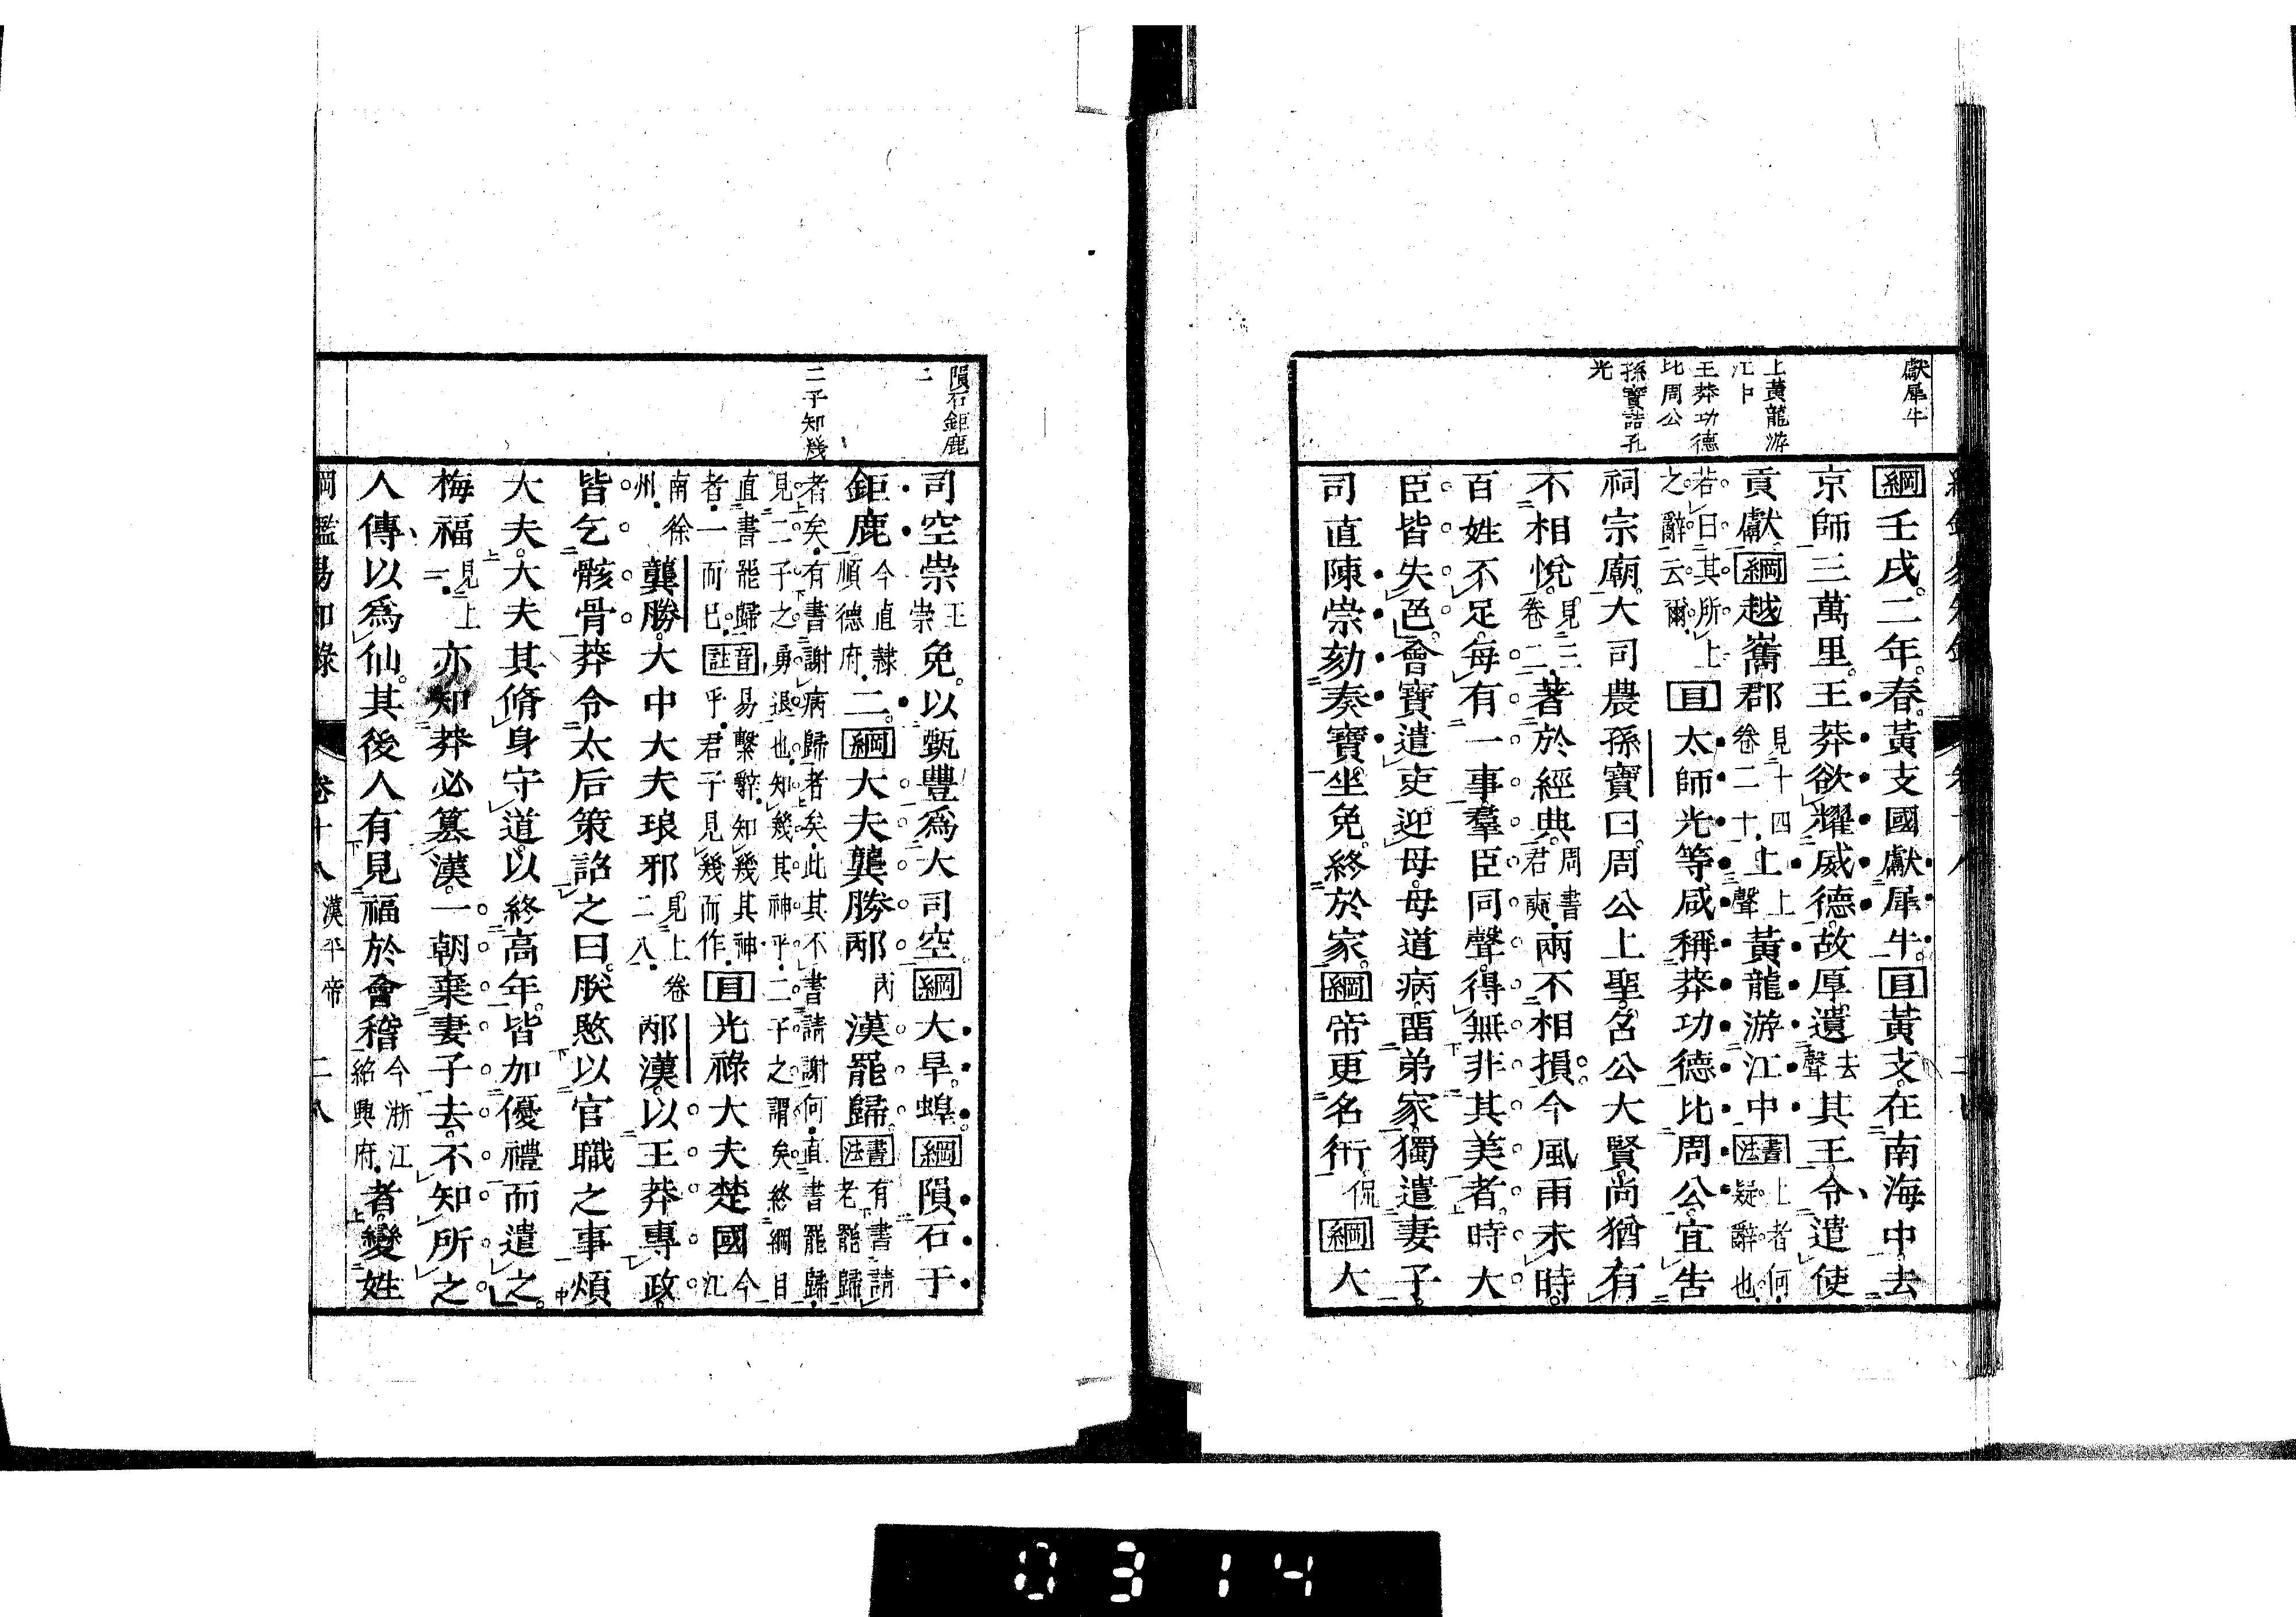 獻犀牛
上黃龍游
江中
王莽功德
比周公
孫寶詰孔
光
綱壬戌二年。春。黃支國獻犀牛。目黃支。在南海中。去
京師三萬里。王莽欲耀威德。故厚遺去聲其王。令遣使
貢獻綱越巂郡見十四卷二十。上上聲黃龍游江中書法上者何。疑辭也。
若曰其所上之辭云爾。目太師光等咸稱莽功德比周公。宜告
祠宗廟。大司農孫寶曰。周公上聖。召公大賢。尚猶有
不相悅。見三卷二。著於經典。周書君奭。兩不相損。今風雨未時。
百姓不足。每有一事。羣臣同聲。得無非其美者。時大
臣皆失色。會寶遣吏迎母。母道病。畱弟家。獨遣妻子。
司直陳崇劾奏寶。坐免。終於家。綱帝更名衎侃綱大
隕石鉅鹿
二
二子知幾
司空崇王崇免。以甄豐爲大司空綱大旱。蝗。綱隕石于
鉅鹿今直隸順德府。二綱大夫龔勝邴丙漢罷歸。書法有書請老罷歸
者矣。有書謝病歸者矣。此其不書請謝何。直書罷歸。
見二子之勇退也。知幾其神乎。二子之謂矣。終綱目
直書罷歸者。一而已。音註易繫辭。知幾其神乎。君子見幾而作。目光祿大夫楚國今江
南徐州。龔勝。大中大夫琅邪見上卷二八。邴漢。以王莽專政。
皆乞骸骨。莽令太后策詔之曰。朕愍以官職之事煩
大夫。大夫其脩身守道。以終高年。皆加優禮而遣之。
梅福見上一。亦知莽必篡漢。一朝棄妻子去。不知所之。
人傳以爲仙。其後人有見福於會稽今浙江紹興府。者。變姓
綱鑑易知錄 卷十八 漢平帝 二八